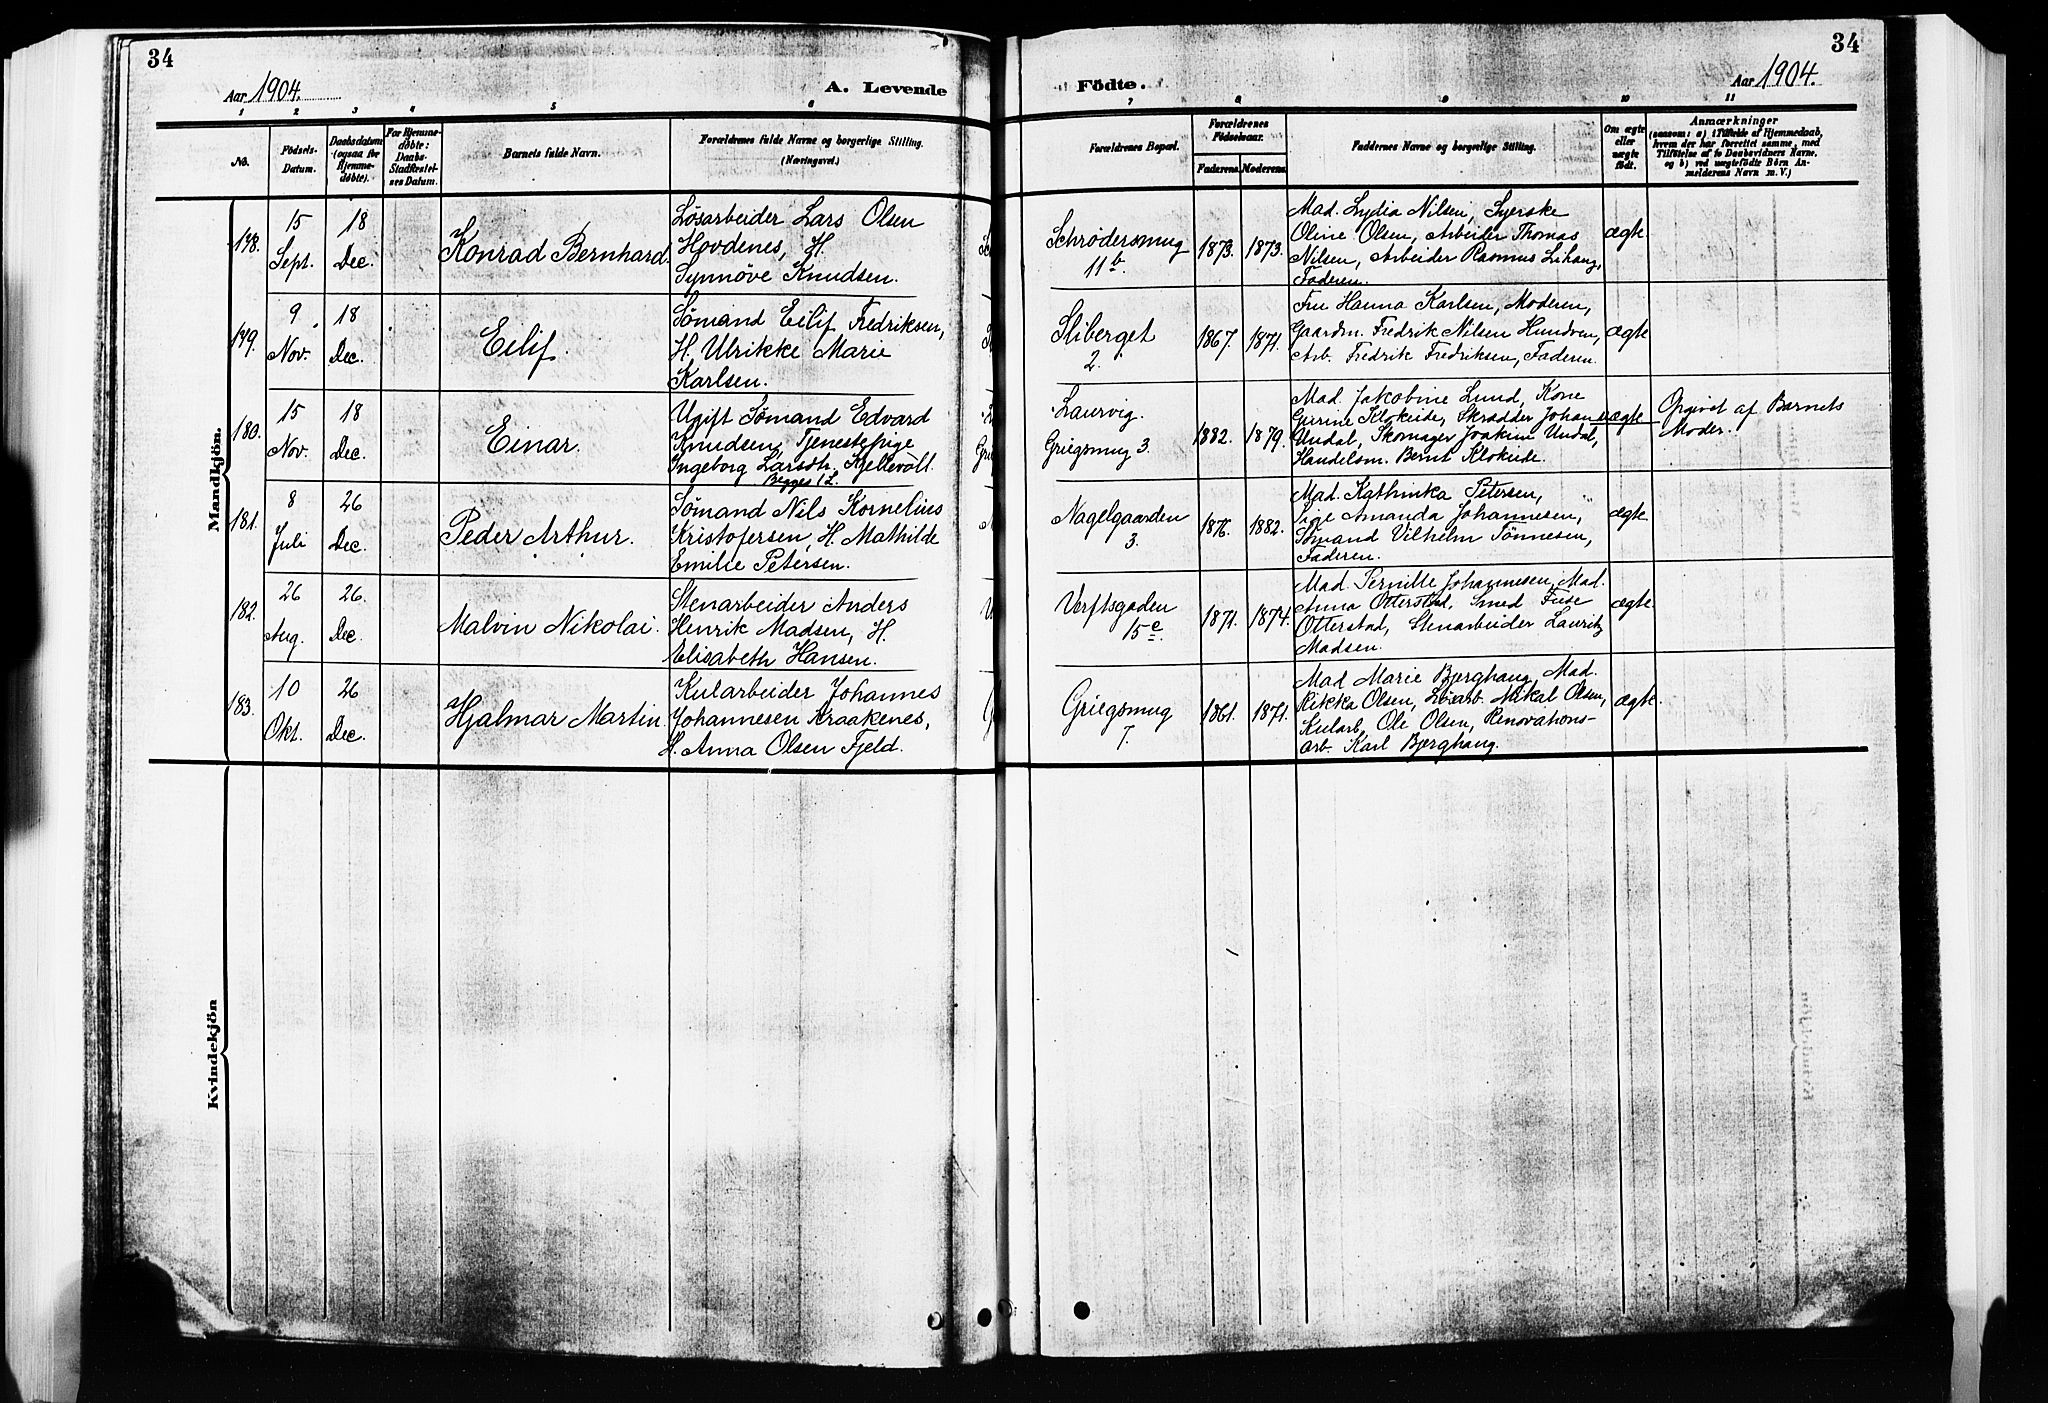 34
Aar 1904.
A. Levende
1 2 3 4 5 6
No.
Födsels-
Datum.
Daabsdatum
(ogsaa for
Hjemme-
døbte).
For Hjemme-
døbte:
Daabs-
Stadfæstel-
ses Datum.
Barnets fulde Navn.
Forældrenes fulde Navne og borgerlige Stilling.
(Næringsvei.)
Mandkjön.
178.
15
Sept.
18
Dec.
Konrad Bernhard.
Løsarbeider Lars Olsen
Hovdenes, H.
Synnöve Knudsen.
179.
9
Nov.
18
Dec.
Eilif.
Sömand Eilif Fredriksen,
H. Ulrikke Marie
Karlsen.
180.
15
Nov.
18
Dec.
Einar.
Ugift Sömand Edvard
Knudsen, Tjenestepige
Ingeborg Larsdtr. Kjellevold.
Begges 1ste L.
181.
8
Juli
26
Dec.
Peder Arthur.
Sömand Nils Kornelius
Kristofersen, H. Mathilde
Emilie Petersen.
182.
26
Aug.
26.
Dec.
Malvin Nikolai.
Stenarbeider Anders
Henrik Madsen, H.
Elisabeth Hansen.
183.
10
Okt.
26
Dec.
Hjalmar Martin
Kularbeider Johannes
Johannesen Kraakenes,
H. Anna Olsen Fjeld.
Kvindekjön
34
Födte.
Aar 1904.
7 8 9 10 11
Forældrenes Bopæl.
Forældrenes
Födselsaar.
Faderens. Moderens.
Faddernes Navne og borgerlige Stilling.
Om ægte
eller
uægte
født.
Anmærkninger
(saasom: a) i Tilfælde af Hjemmedaab,
hvem der har forrettet samme, med
Tilføielse af to Daabsvidners Navne,
og b) ved uægtefödte Börn An-
melderens Navn m. V.)
Schrödersmug
11b.
1873. 1873.
Mad. Lydia Nilsen, Syerske
Oline Olsen, Arbeider Thomas
Nilsen, Arbeider Rasmus Lihaug,
Faderen.
ægte.
Sliberget
2.
1867. 1871.
Fru Hanna Karlsen, Moderen,
Gaardm. Fredrik Nilsen Hundven,
Arb. Fredrik Fredriksen, Faderen.
ægte
Laurvig.
Griegsmug 3.
1882. 1879.
Mad. Jakobine Lund, Kone
Gurine Klokeide, Skrædder Johan
Undal, Skomager Joakim Undal,
Handelsm. Bernt Klokeide.
uægte
Opgivet af Barnets
Moder.
Nagelgaarden
3.
1876. 1882.
Mad. Kathinka Petersen,
Pige Amanda Johannesen,
Sömand Vilhelm Tönnesen,
Faderen.
ægte
Verftsgaden
15c
1871. 1874.
Mad. Pernille Johannesen, Mad.
Anna Otterstad, Smed
Otterstad, Stenarbeider Lauritz
Madsen.
ægte.
Griegsmug
7.
1861. 1871.
Mad Marie Bjerghaug, Mad.
Rikka Olsen, Løsarb. Mikal Olsen,
Kularb. Ole Olsen, Renovations-
arb. Karl Bjerghaug.
ægte.